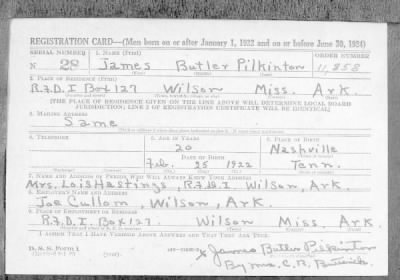 REGISTRATION CARD—(Men born on or after January 1, 1922 and on or before June 30, 1924)
SERIAL NUMBER 1. NAME (Print) ORDER NUMBER
N 28 James Butler Pilkinton 11,858
(First) (Middle) (Last)
2. PLACE OF RESIDENCE (Print)
R.F.D. I Box 127 Wilson Miss. Ark.
[THE PLACE OF RESIDENCE GIVEN ON THE LINE ABOVE WILL DETERMINE LOCAL BOARD
JURISDICTION; LINE 2 OF REGISTRATION CERTIFICATE WILL BE IDENTICAL]
3. MAILING ADDRESS
Same
4. TELEPHONE 5. AGE IN YEARS 6. PLACE OF BIRTH
20 Nashville
DATE OF BIRTH
Feb. 25 1922 Tenn.
7. NAME AND ADDRESS OF PERSON WHO WILL ALWAYS KNOW YOUR ADDRESS
Mrs. Lois Hastings, R.F.D. I. Wilson, Ark.
8. EMPLOYER'S NAME AND ADDRESS
Joe Cullom, Wilson, Ark.
9. PLACE OF EMPLOYMENT OR BUSINESS
R.F.D. I. Box 127. Wilson Miss. Ark.
I AFFIRM THAT I HAVE VERIFIED ABOVE ANSWERS AND THAT THEY ARE TRUE.
D. S. S. FORM 1
x James Butler Pilkinton
By Mrs. C. R.